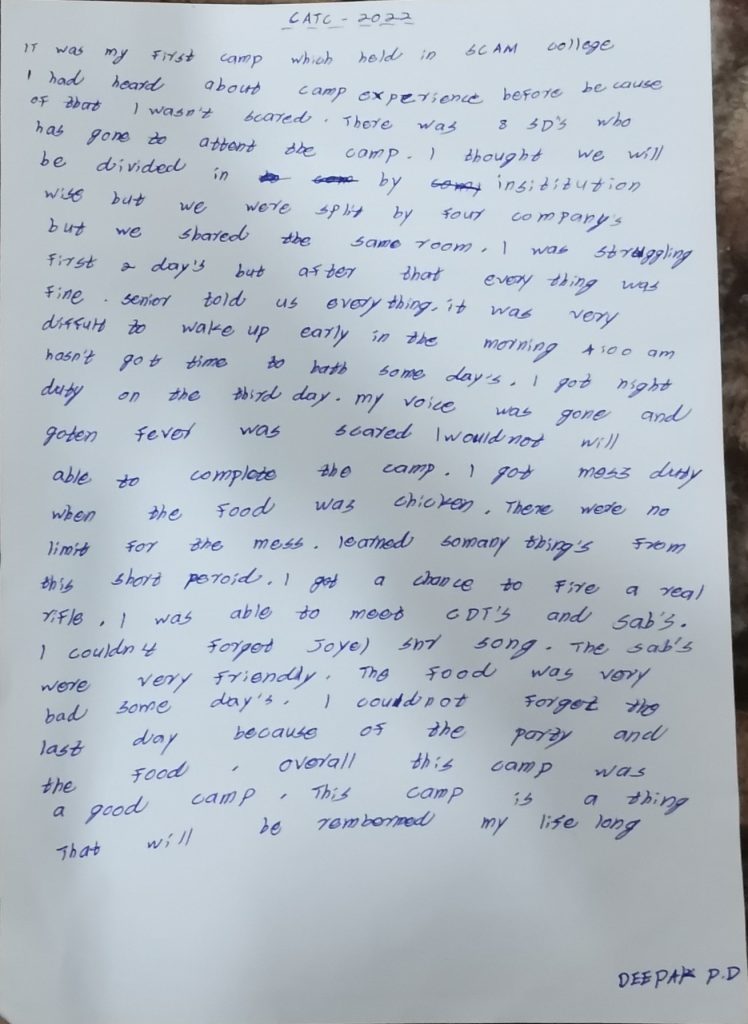 CATC - 2022
IT was my first camp which held in SCAM college
I had heard about camp experience before because
of that I wasn't scared. There was 8 SD's who
has gone to attent the camp. I thought we will
be divided in by insititution
wise but we were split by four company's
but we shared the same room. I was struggling
first 2 day's but after that every thing was
fine. senior told us everything. it was very
diffult to wake up early in the morning 4:00 am
hasn't got time to bath some day's. I got night
duty on the third day. my voice was gone and
goten fever was scared I would not will
able to complete the camp. I got mess duty
when the food was chicken. There were no
limit for the mess. learned somany thing's from
this short peroid. I got a chance to fire a real
rifle. I was able to meet CDT'S and sab's.
I couldn't forget Joyel song. The sab's
were very friendly. The food was very
bad some day's. I couldnot forget the
last day because of the party and
the food. overall this camp was
a good camp. This camp is a thing
That will be rembormed my life long
DEEPAK P.D